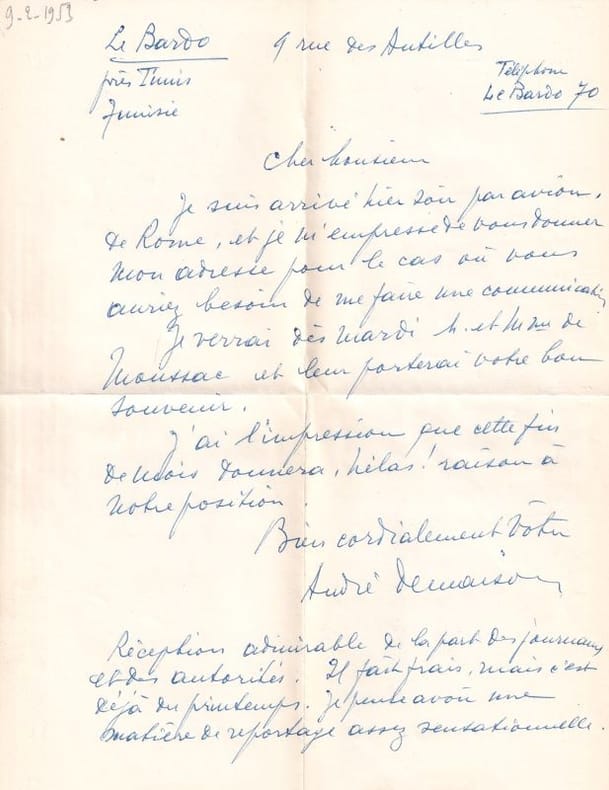 9-2-1953
Le Bardo 9 rue des Antilles
près Tunis
Tunisie
Téléphone
Le Bardo 70
Cher Monsieur
Je suis arrivé hier soir par avion,
de Rome, et je m'empresse de vous donner
mon adresse pour le cas où vous
auriez besoin de me faire une communication.
Je verrai dès mardi M. et Mme de
Moussac et leur porterai votre bon
souvenir.
J'ai l'impression que cette fin
de mois donnera, hélas! raison à
notre position.
Bien cordialement vôtre
André Demaison
Réception admirable de la part des journaux
et des autorités. Il fait frais, mais c'est
déjà du printemps. Je pense avoir une
matière de reportage assez sensationnelle.